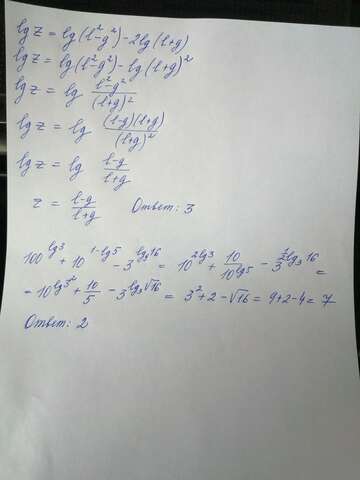 lg z = lg(l²-g²)-2lg(l+g)
lg z = lg(l²-g²)-lg(l+g)²
lg z = lg (l²-g²)/(l+g)²
lg z = lg (l-g)(l+g)/(l+g)²
lg z = lg (l-g)/(l+g)
z = (l-g)/(l+g) Ответ: 3
100^(lg3) + 10^(1-lg5) - 3^(lg₉16) = 10^(2lg3) + 10/10^(lg5) - 3^(½lg₃16) =
= 10^(lg3²) + 10/5 - 3^(lg₃√16) = 3²+2-√16 = 9+2-4 = 7
Ответ: 2